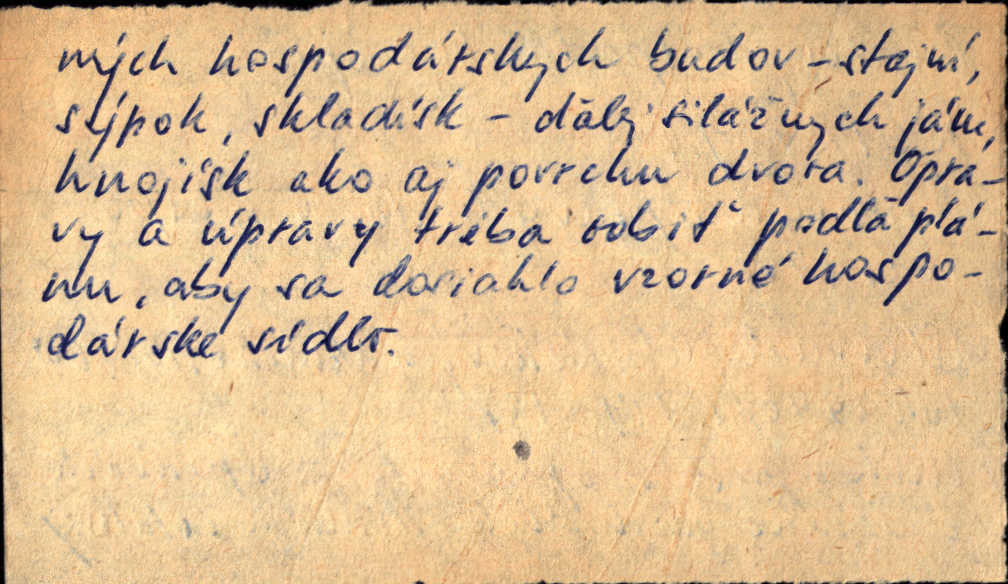 ných hospodárskych budov – stajní,
sýpok, skladísk – ďalej silážnych jám,
hnojísk ako aj povrchu dvora. Opra-
vy a úpravy treba robiť podľa plá-
nu, aby sa dosiahlo vzorné hospo-
dárske sídlo.